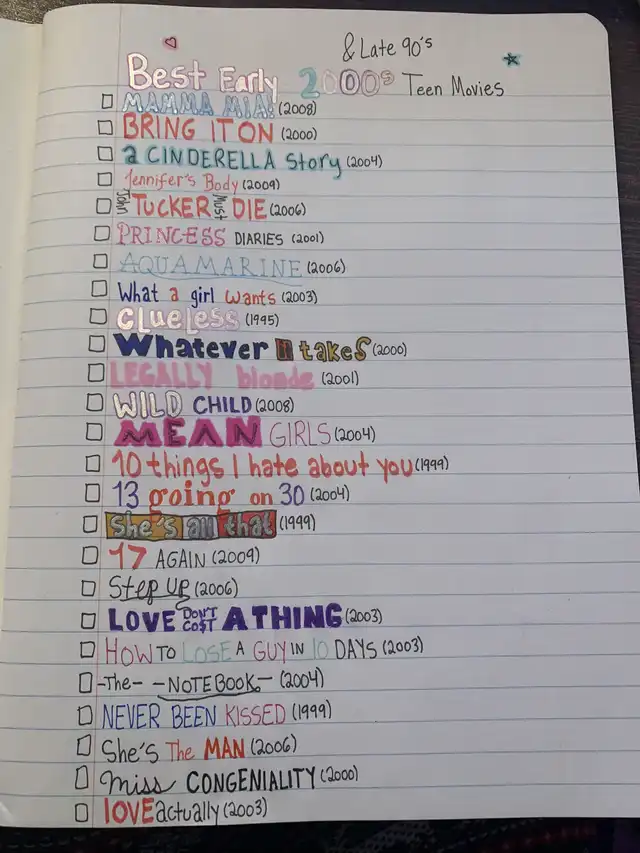 & Late 90's
Best Early 2000s Teen Movies
MAMMA MIA! (2008)
BRING IT ON (2000)
a CINDERELLA Story (2004)
Jennifer's Body (2009)
John TUCKER Must DIE (2006)
PRINCESS DIARIES (2001)
AQUAMARINE (2006)
What a girl wants (2003)
CLUELESS (1995)
Whatever it takes (2000)
LEGALLY blonde (2001)
WILD CHILD (2008)
MEAN GIRLS (2004)
10 things I hate about you (1999)
13 going on 30 (2004)
She's all that (1999)
17 AGAIN (2009)
Step UP (2006)
LOVE DON'T CO$T A THING (2003)
HOW TO LOSE A GUY IN 10 DAYS (2003)
-The- -NOTEBOOK- (2004)
NEVER BEEN KISSED (1999)
She's The MAN (2006)
Miss CONGENIALITY (2000)
lOVE actually (2003)